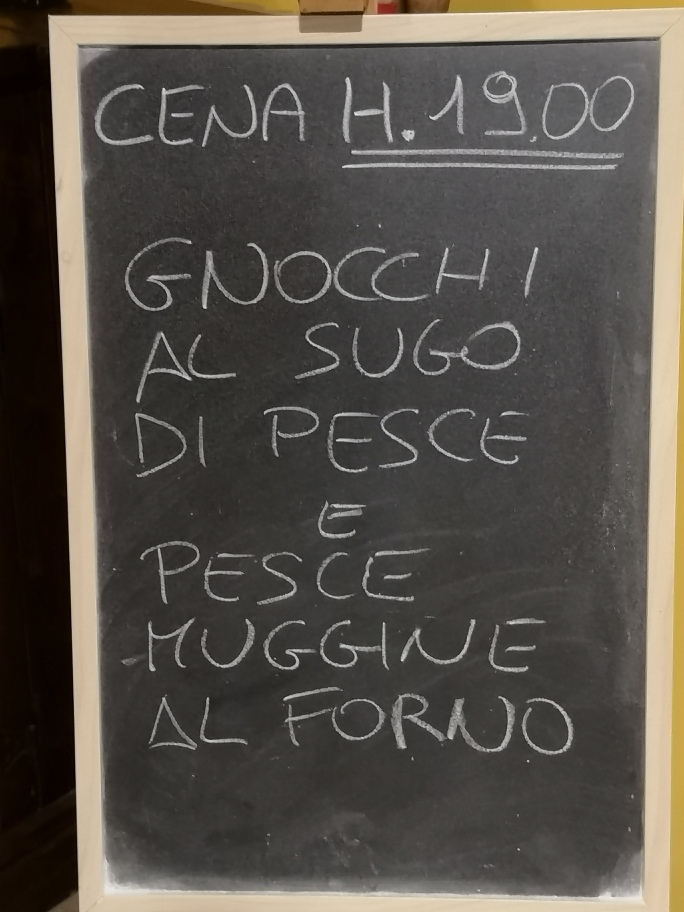 CENA H. 19.00
GNOCCHI
AL SUGO
DI PESCE
E
PESCE
MUGGINE
AL FORNO